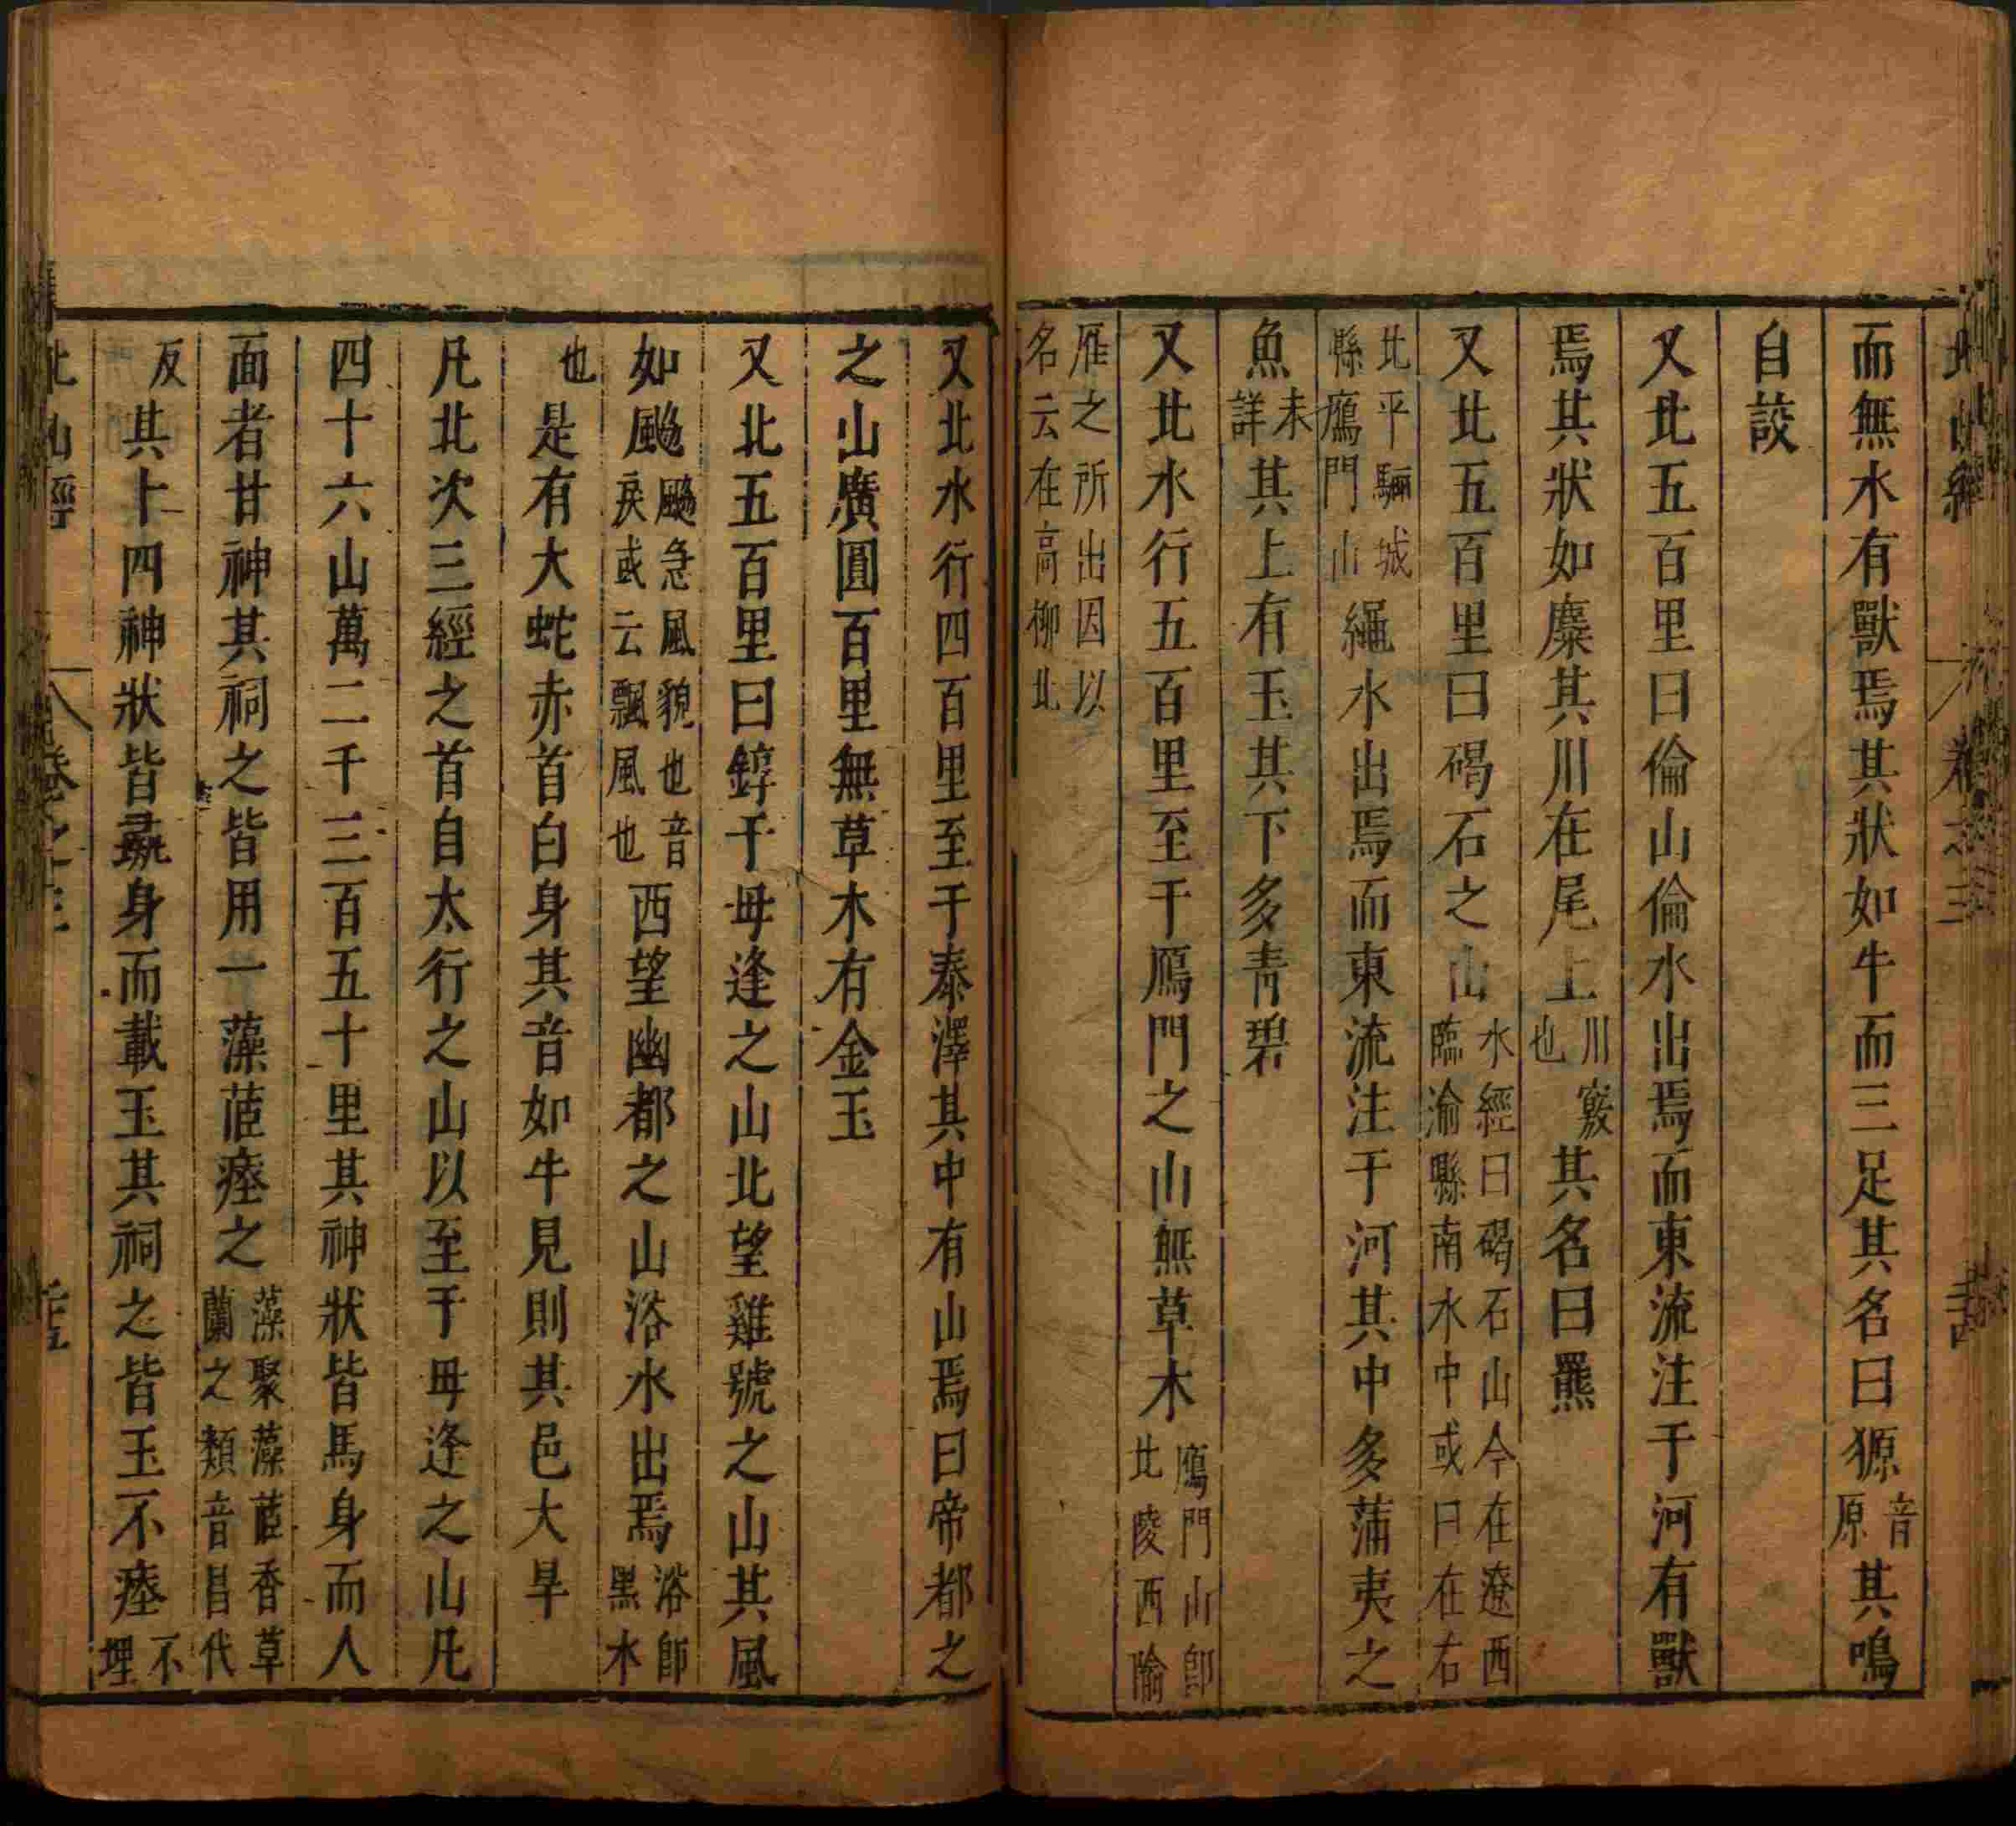 北山經 卷之三 二十四
而無水有獸焉其狀如牛而三足其名曰獂音原其鳴
自詨
又北五百里曰倫山倫水出焉而東流注于河有獸
焉其狀如麋其川在尾上川竅也其名曰羆
又北五百里曰碣石之山水經曰碣石山今在遼西臨渝縣南水中或曰在右
北平驪城縣鴈門山繩水出焉而東流注于河其中多蒲夷之
魚未詳其上有玉其下多青碧
又北水行五百里至于鴈門之山無草木鴈門山即北陵西隃
雁之所出因以名云在高柳北
又北水行四百里至于泰澤其中有山焉曰帝都之
之山廣圓百里無草木有金玉
又北五百里曰錞于毋逢之山北望雞號之山其風
如䬅䬅急風貌也音戾或云飄風也西望幽都之山浴水出焉浴即黑水
也是有大蛇赤首白身其音如牛見則其邑大旱
凡北次三經之首自太行之山以至于毋逢之山凡
四十六山萬二千三百五十里其神狀皆馬身而人
面者廿神其祠之皆用一藻茝瘞之藻聚藻茝香草蘭之類音昌代
反其十四神狀皆彘身而載玉其祠之皆玉不瘞不埋
北山經 卷之三 二十五